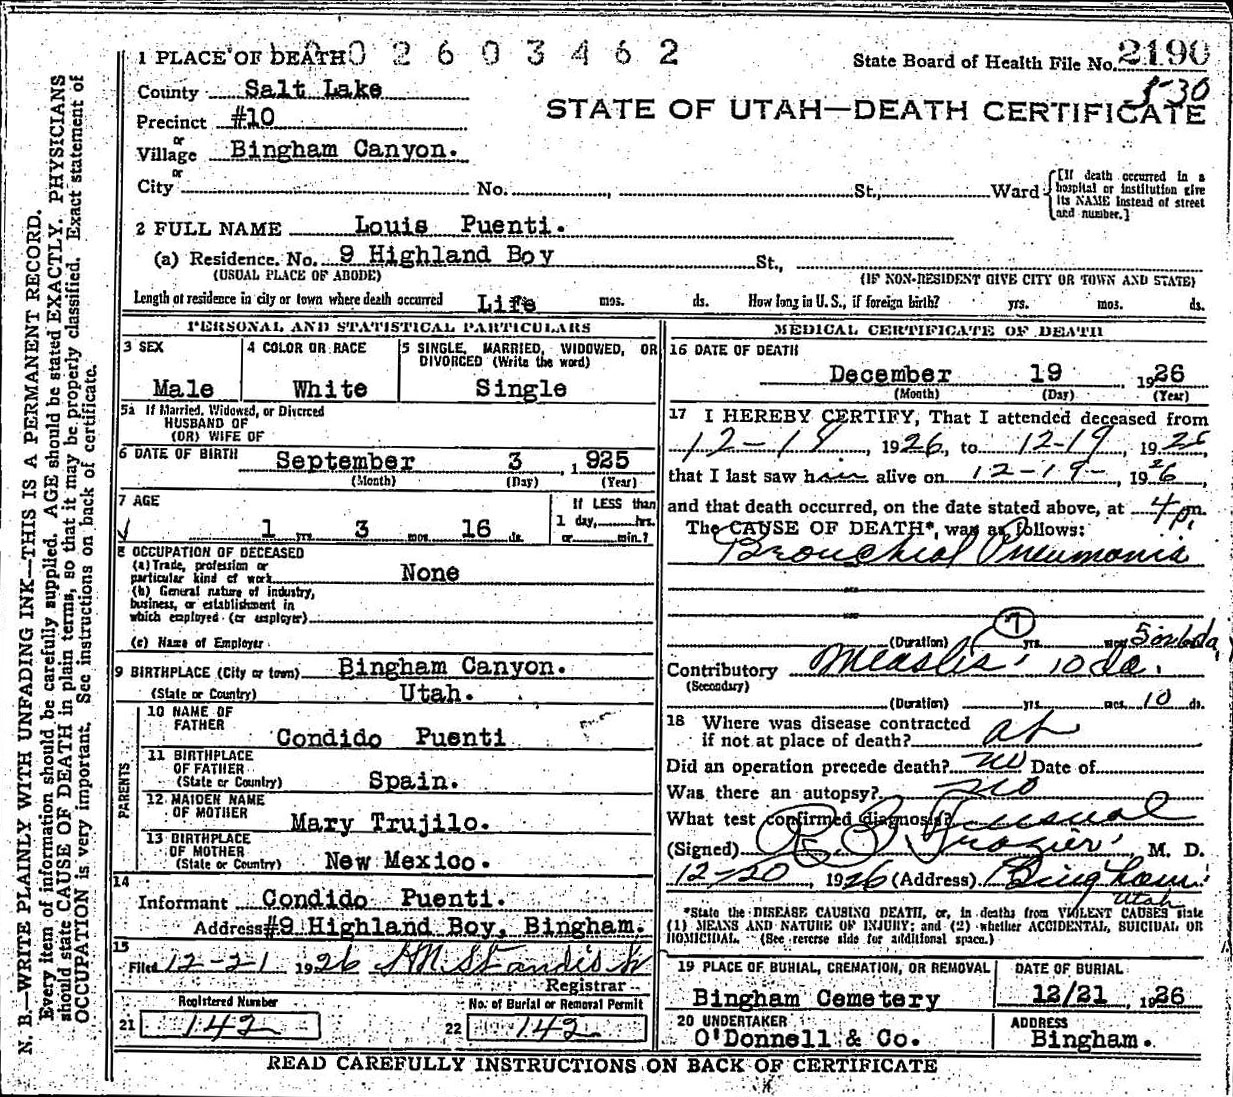 N. B.—WRITE PLAINLY WITH UNFADING INK—THIS IS A PERMANENT RECORD.
Every item of information should be carefully supplied. AGE should be stated EXACTLY. PHYSICIANS
should state CAUSE OF DEATH in plain terms, so that it may be properly classified. Exact statement of
OCCUPATION is very important. See instructions on back of certificate.
1 PLACE OF DEATH 0 2 6 0 3 4 6 2
State Board of Health File No. 2190
3-30
County Salt Lake
STATE OF UTAH—DEATH CERTIFICATE
Precinct #10
or
Village Bingham Canyon.
or
City No. St., Ward
[If death occurred in a
hospital or institution give
its NAME instead of street
and number.]
2 FULL NAME Louis Puenti.
(a) Residence. No. 9 Highland Boy St.,
(USUAL PLACE OF ABODE) (IF NON-RESIDENT GIVE CITY OR TOWN AND STATE)
Length of residence in city or town where death occurred Life mos. ds. How long in U. S., if foreign birth? yrs. mos. ds.
PERSONAL AND STATISTICAL PARTICULARS
3 SEX
Male
4 COLOR OR RACE
White
5 SINGLE, MARRIED, WIDOWED, OR
DIVORCED (Write the word)
Single
5a If Married, Widowed, or Divorced
HUSBAND OF
(OR) WIFE OF
6 DATE OF BIRTH
September 3, 1925
(Month) (Day) (Year)
7 AGE
1 yrs. 3 mos. 16 ds.
If LESS than
1 day, hrs.
or min.?
8 OCCUPATION OF DECEASED
(a) Trade, profession or
particular kind of work None
(b) General nature of industry,
business, or establishment in
which employed (or employer)
(c) Name of Employer
9 BIRTHPLACE (City or town) Bingham Canyon.
(State or Country) Utah.
PARENTS
10 NAME OF
FATHER
Condido Puenti
11 BIRTHPLACE
OF FATHER
(State or Country) Spain.
12 MAIDEN NAME
OF MOTHER
Mary Trujilo.
13 BIRTHPLACE
OF MOTHER
(State or Country) New Mexico.
14
Informant Condido Puenti.
Address #9 Highland Boy, Bingham.
15
Filed 12-21 1926 HM Standish
Registrar
Registered Number
21 142
No. of Burial or Removal Permit
22 142
MEDICAL CERTIFICATE OF DEATH
16 DATE OF DEATH
December 19, 1926
(Month) (Day) (Year)
17 I HEREBY CERTIFY, That I attended deceased from
12-18, 1926, to 12-19, 1926,
that I last saw him alive on 12-19-, 1926,
and that death occurred, on the date stated above, at 4 pm.
The CAUSE OF DEATH*, was as follows:
Bronchial Pneumonia
7
(Duration) yrs. mos. 5 or 6 da.
Contributory Measles 10 da.
(Secondary)
(Duration) yrs. mos. 10 ds.
18 Where was disease contracted
if not at place of death? at
Did an operation precede death? no Date of
Was there an autopsy? no
What test confirmed diagnosis? usual
(Signed) Frazier, M. D.
12-20, 1926 (Address) Bingham
Utah
*State the DISEASE CAUSING DEATH, or, in deaths from VIOLENT CAUSES state
(1) MEANS AND NATURE OF INJURY; and (2) whether ACCIDENTAL, SUICIDAL OR
HOMICIDAL. (See reverse side for additional space.)
19 PLACE OF BURIAL, CREMATION, OR REMOVAL
Bingham Cemetery
DATE OF BURIAL
12/21, 1926
20 UNDERTAKER
O'Donnell & Co.
ADDRESS
Bingham.
READ CAREFULLY INSTRUCTIONS ON BACK OF CERTIFICATE